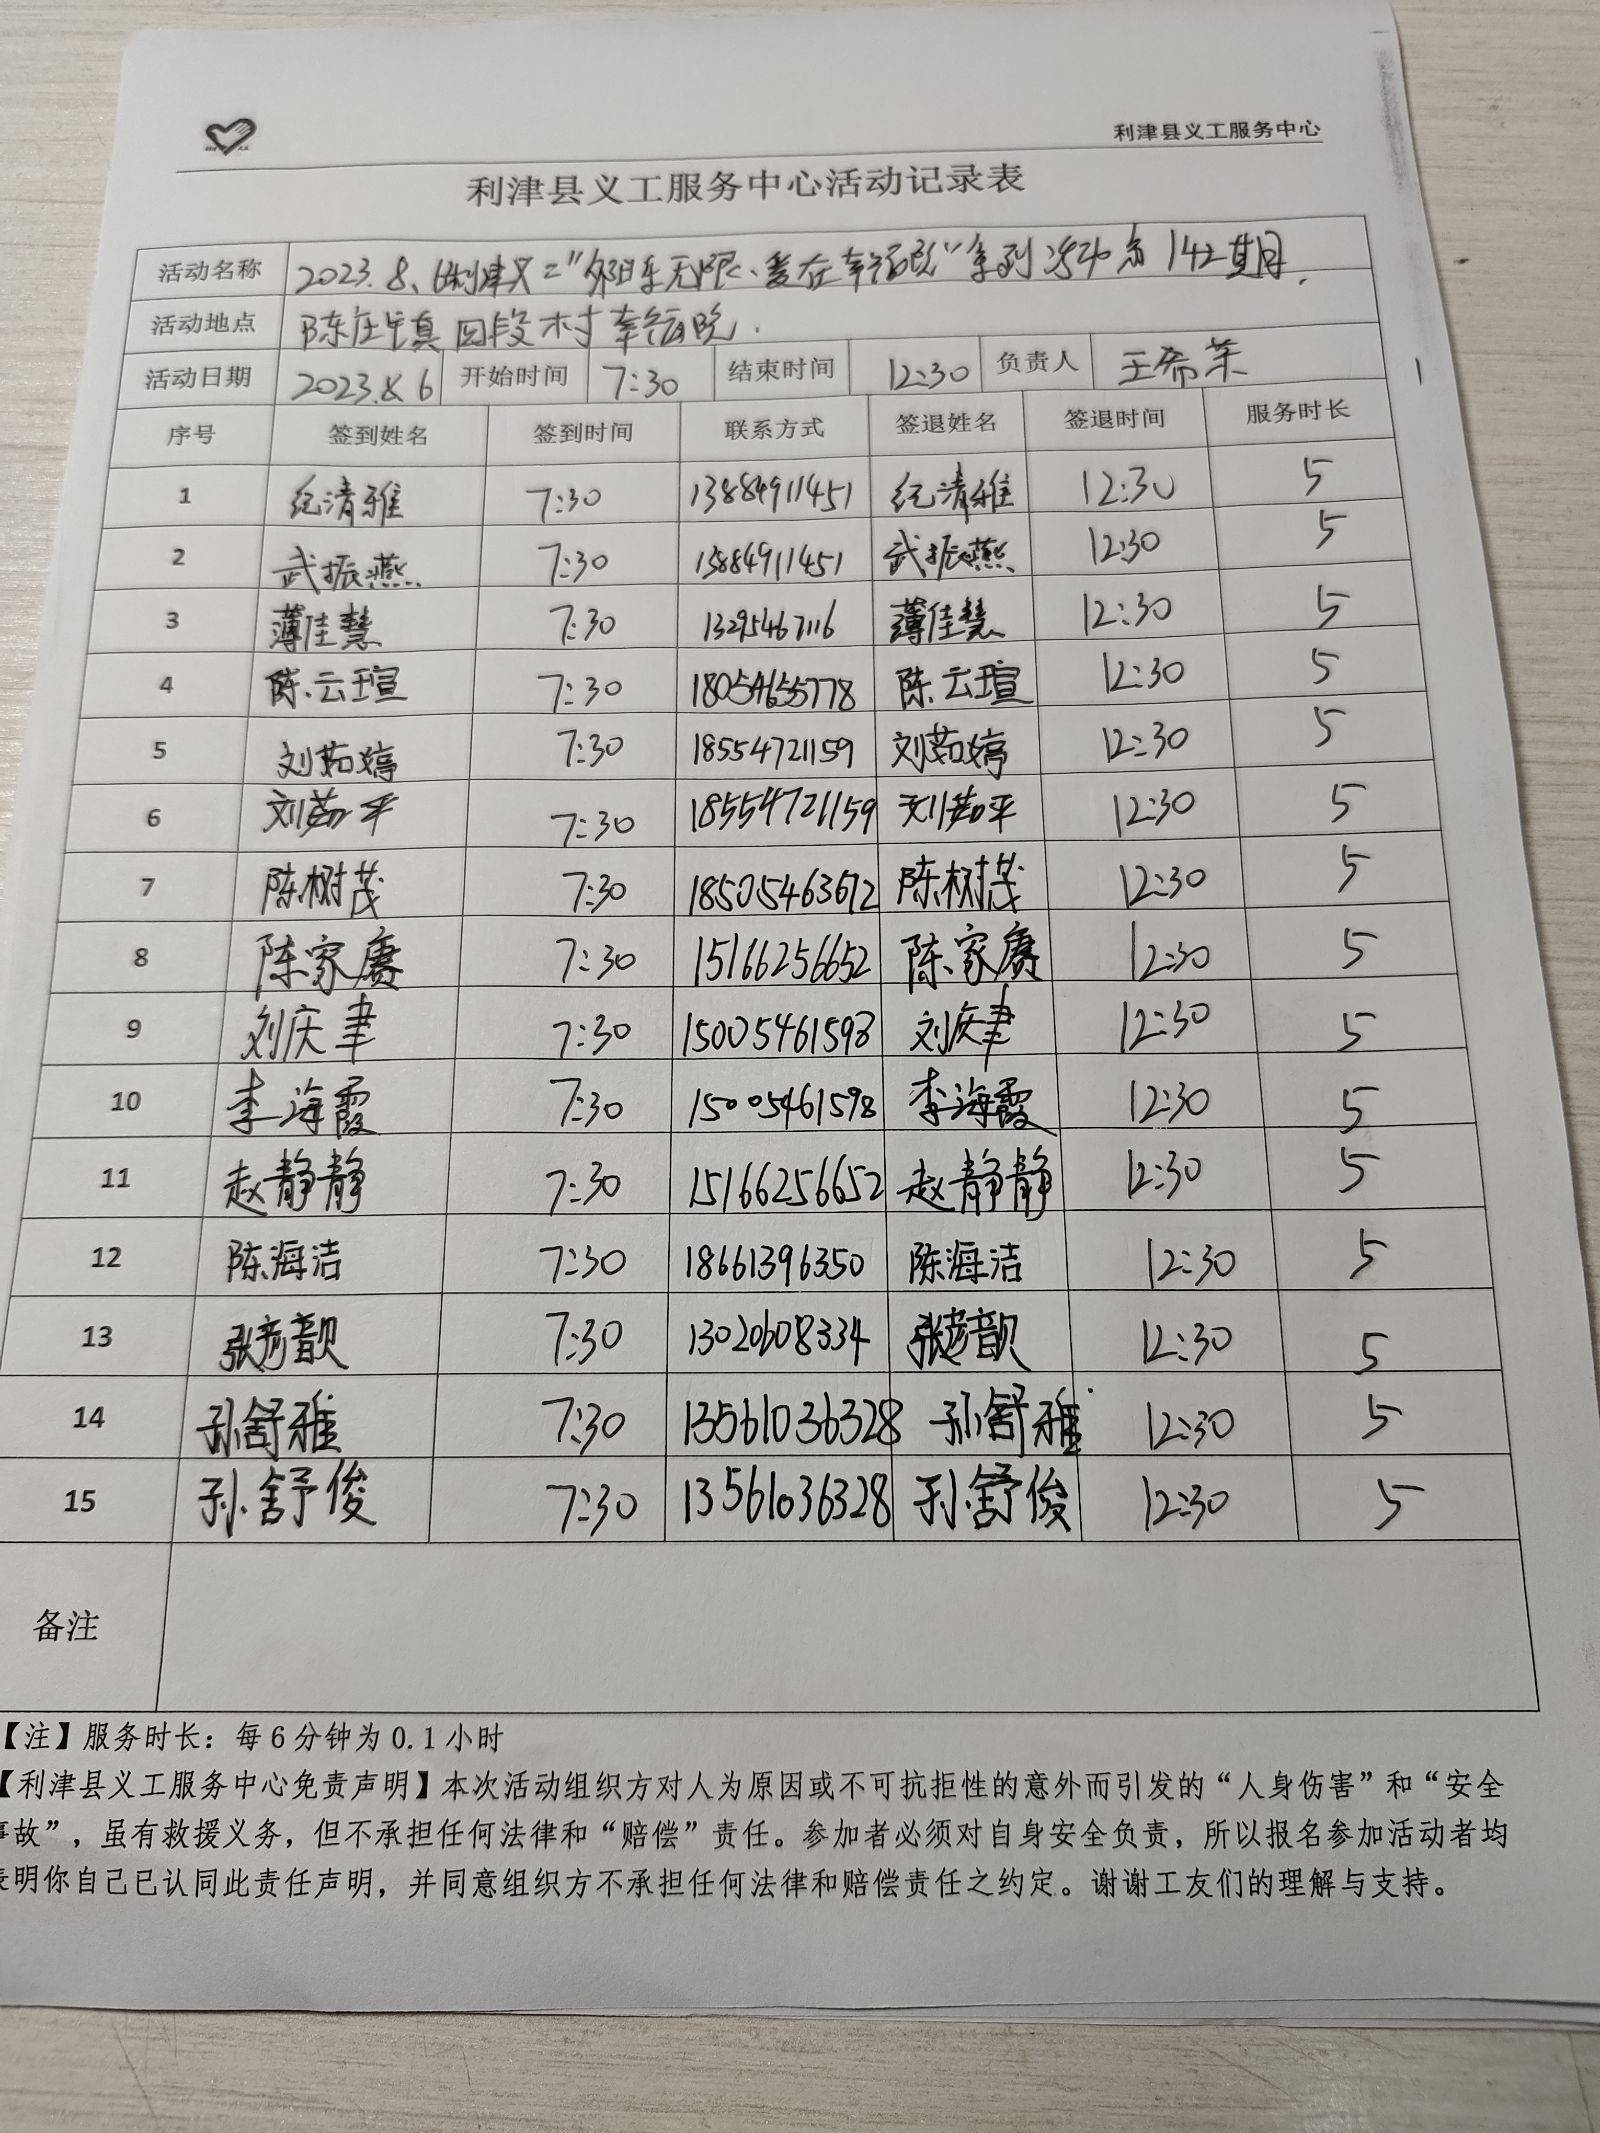 利津县义工服务中心
利津县义工服务中心活动记录表
活动名称 2023.8.6利津义工"夕阳乐无限、爱在幸福院"系列活动第142期.
活动地点 陈庄镇四段村幸福院.
活动日期 2023.8.6 开始时间 7:30 结束时间 12:30 负责人 王希荣
序号 签到姓名 签到时间 联系方式 签退姓名 签退时间 服务时长
1 纪清雅 7:30 13884911451 纪清雅 12:30 5
2 武振燕 7:30 13884911451 武振燕 12:30 5
3 薄佳慧 7:30 13295467116 薄佳慧 12:30 5
4 陈云瑄 7:30 18054655778 陈云瑄 12:30 5
5 刘茹婷 7:30 18554721159 刘茹婷 12:30 5
6 刘茹平 7:30 18554721159 刘茹平 12:30 5
7 陈树茂 7:30 18505463672 陈树茂 12:30 5
8 陈家赓 7:30 15166256652 陈家赓 12:30 5
9 刘庆聿 7:30 15005461598 刘庆聿 12:30 5
10 李海霞 7:30 15005461598 李海霞 12:30 5
11 赵静静 7:30 15166256652 赵静静 12:30 5
12 陈海洁 7:30 18661396350 陈海洁 12:30 5
13 7:30 13020608334 12:30 5
14 孙舒雅 7:30 13561036328 孙舒雅 12:30 5
15 孙舒俊 7:30 13561036328 孙舒俊 12:30 5
备注
【注】服务时长：每6分钟为0.1小时
【利津县义工服务中心免责声明】本次活动组织方对人为原因或不可抗拒性的意外而引发的“人身伤害”和“安全
事故”，虽有救援义务，但不承担任何法律和“赔偿”责任。参加者必须对自身安全负责，所以报名参加活动者均
表明你自己已认同此责任声明，并同意组织方不承担任何法律和赔偿责任之约定。谢谢工友们的理解与支持。